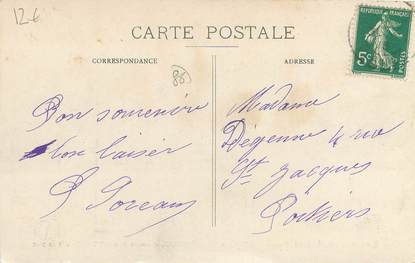 12€
CARTE POSTALE
RÉPUBLIQUE FRANÇAISE
5c
POSTES
CORRESPONDANCE
86
Bon souvenir
bon baiser
ADRESSE
Madame
Dégenne 4 rue
St Jacques
Poitiers